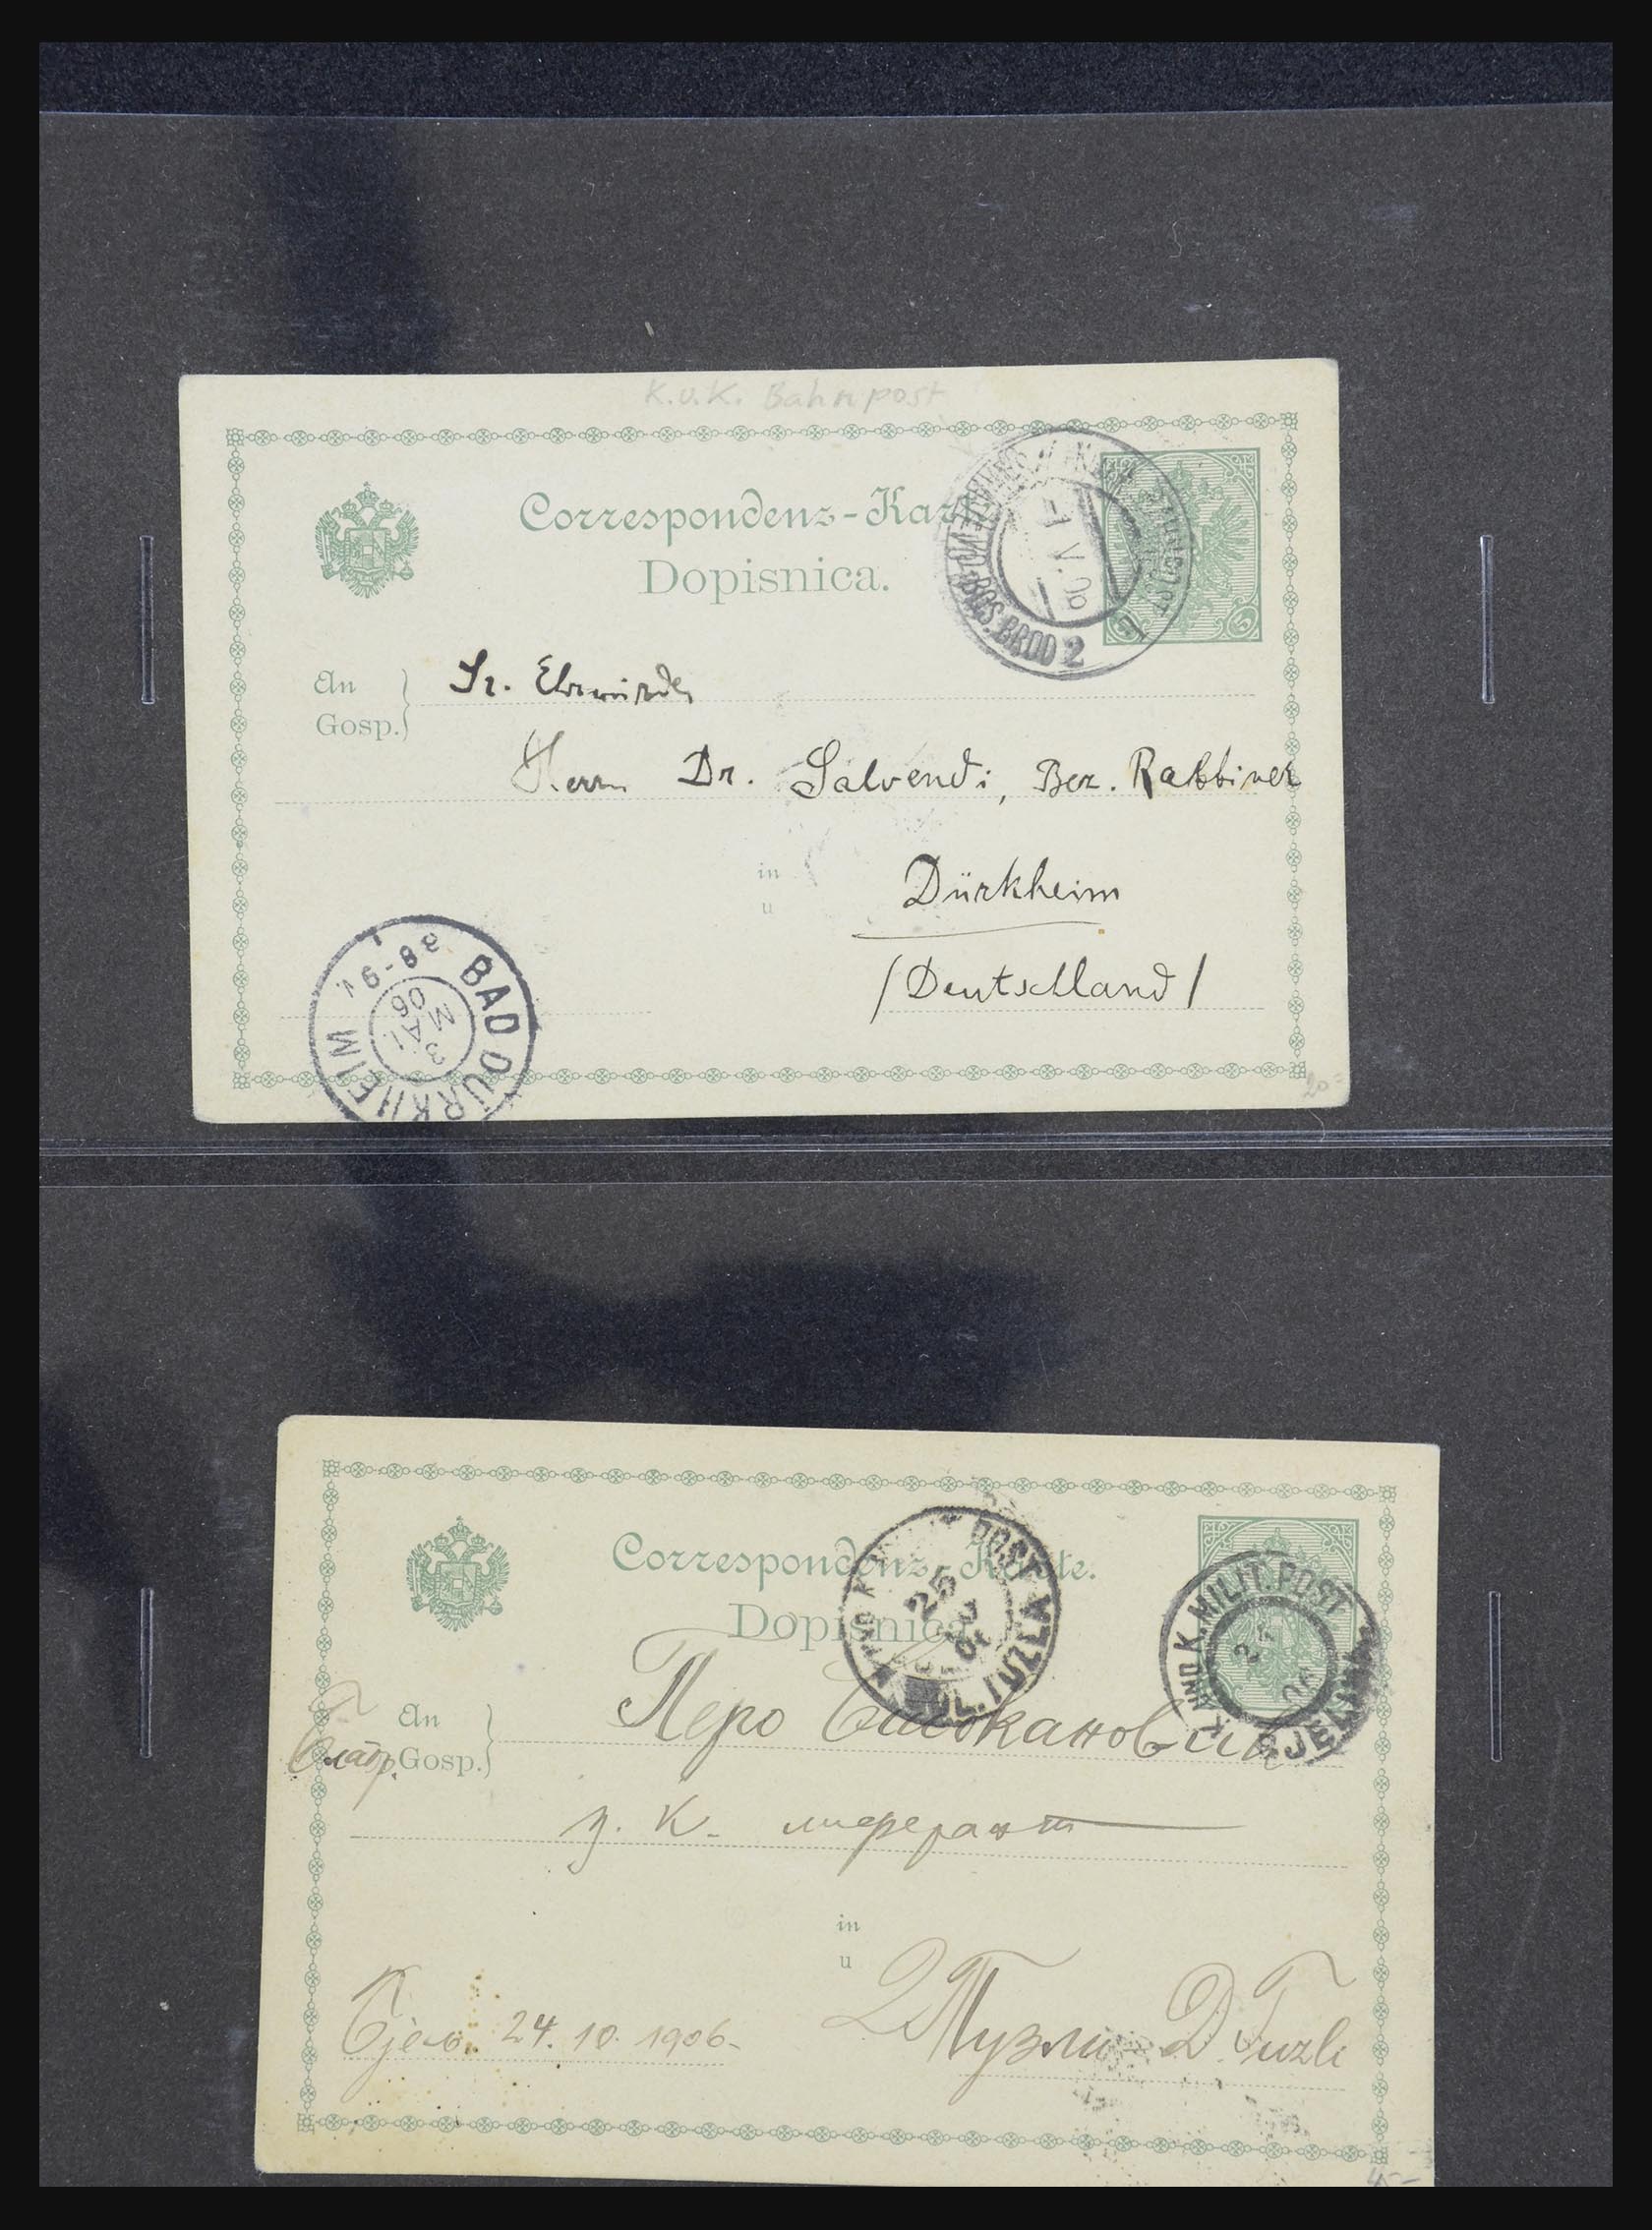 K.u.K. Bahnpost
Correspondenz-Karte
Dopisnica.
BOS. BROD 2
V. 06
5
An
Gosp.
Sr. Ehrwürden
Herrn Dr. Salvendi, Bez. Rabbiner
in
u
Dürkheim
/Deutschland/
BAD DÜRKHEIM
3 MAI 06
8-9 V.
20=
Correspondenz-Karte.
Dopisnica.
K. UND K. MILIT. POST
DOL. TUZLA
25
K. UND K. MILIT. POST
BJELINA
An
Gosp.
Перо
ц. К. лиферант
in
u
Бјељ. 24. 10. 1906-
Д Тузли D. Tuzli